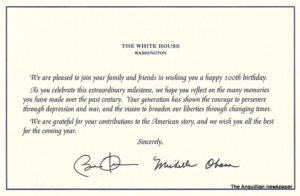 THE WHITE HOUSE
WASHINGTON
We are pleased to join your family and friends in wishing you a happy 100th birthday.
As you celebrate this extraordinary milestone, we hope you reflect on the many memories
you have made over the past century. Your generation has shown the courage to persevere
through depression and war, and the vision to broaden our liberties through changing times.
We are grateful for your contributions to the American story, and we wish you all the best
for the coming year.
Sincerely,
Michelle Obama
The Anguillian newspaper